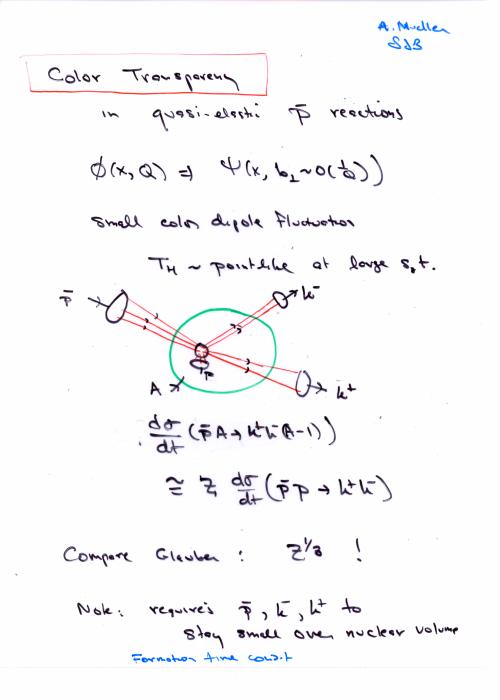 A. Mueller
SJB
Color Transparency
in quasi-elastic p̄ reactions
ϕ(x, Q) ⇒ Ψ(x, b⊥ ~ O(1/Q))
small color dipole fluctuation
T_H ~ pointlike at large s, t.
p̄ → → k⁻
p
A → k⁺
dσ/dt (p̄A → k⁺k⁻(A-1))
≅ Z dσ/dt (p̄p → k⁺k⁻)
Compare Glauber : Z^1/3 !
Note: requires p̄, k⁻, k⁺ to
stay small over nuclear volume
Formation time cond.t